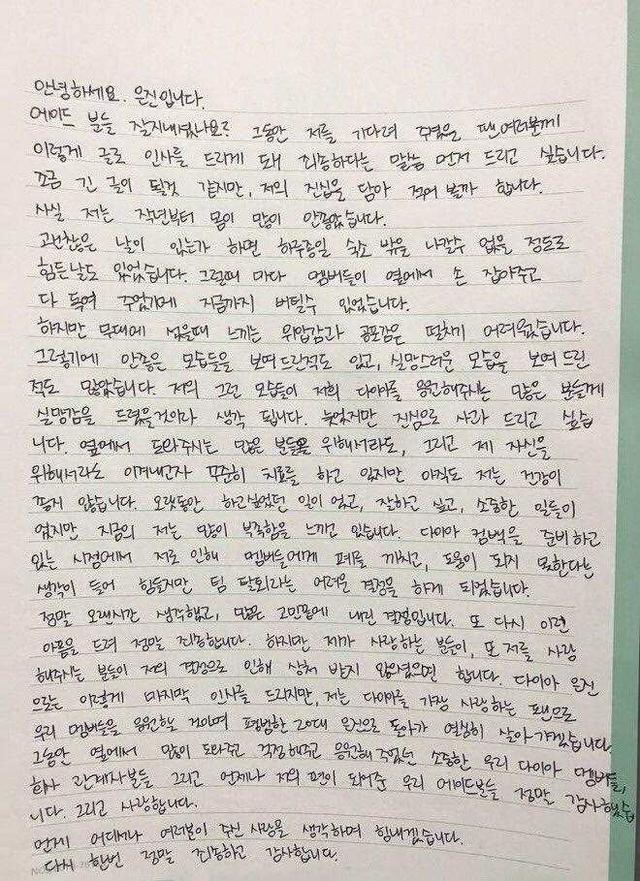 안녕하세요. 은진입니다.
에이드 분들 잘지내셨나요? 그동안 저를 기다려 주셨을 팬,여러분께
이렇게 글로 인사를 드리게 돼 죄송하다는 말씀 먼저 드리고 싶습니다.
조금 긴 글이 될것 같지만, 저의 진심을 담아 적어 볼까 합니다.
사실 저는 작년부터 몸이 많이 안좋았습니다.
괜찮은 날이 있는가 하면 하루종일 숙소 밖을 나갈수 없을 정도로
힘든날도 있었습니다. 그럴때 마다 멤버들이 옆에서 손 잡아주고
다 독여 주었기에 지금까지 버틸수 있었습니다.
하지만 무대에 섰을때 느끼는 위압감과 공포감은 떨치기 어려웠습니다.
그렇기에 안좋은 모습들을 보여드린적도 있고, 실망스러운 모습을 보여 드린
적도 많았습니다. 저의 그런 모습들이 저희 다이아를 응원해주시는 많은 분들께
실망감을 드렸을것이라 생각 됩니다. 늦었지만 진심으로 사과 드리고 싶습
니다. 옆에서 도와주시는 많은 분들을 위해서라도, 그리고 제 자신을
위해서라도 이겨내고자 꾸준히 치료를 하고 있지만 아직도 저는 건강이
좋지 않습니다. 오랫동안 하고싶었던 일이 었고, 잘하고 싶고, 소중한 일들이
였지만 지금의 저는 많이 부족함을 느끼고 있습니다. 다이아 컴백을 준비하고
있는 시점에서 저로 인해 멤버들에게 폐를 끼치고, 도움이 되지 못한다는
생각이 들어 힘들지만 팀 탈퇴라는 어려운 결정을 하게 되었습니다.
정말 오래시간 생각했고, 많은 고민끝에 내린 결정입니다. 또 다시 이런
아픔을 드려 정말 죄송합니다. 하지만 제가 사랑하는 분들이, 또 저를 사랑
해주시는 분들이 저의 결정으로 인해 상처 받지 않으셨으면 합니다. 다이아 은진
으로는 이렇게 마지막 인사를 드리지만, 저는 다이아를 가장 사랑하는 팬으로
우리 멤버들을 응원할 것이며 평범한 20대 은진으로 돌아가 열심히 살아가겠습니다.
그동안 옆에서 많이 도와주고 걱정해주고 응원해 주었던 소중한 우리 다이아 멤버들,
회사 관계자분들 그리고 언제나 저의 편이 되어준 우리 에이드분들 정말 감사했습
니다. 그리고 사랑합니다.
언제 어디서나 여러분이 주신 사랑을 생각하며 힘내겠습니다.
다시 한번 정말 죄송하고 감사합니다.